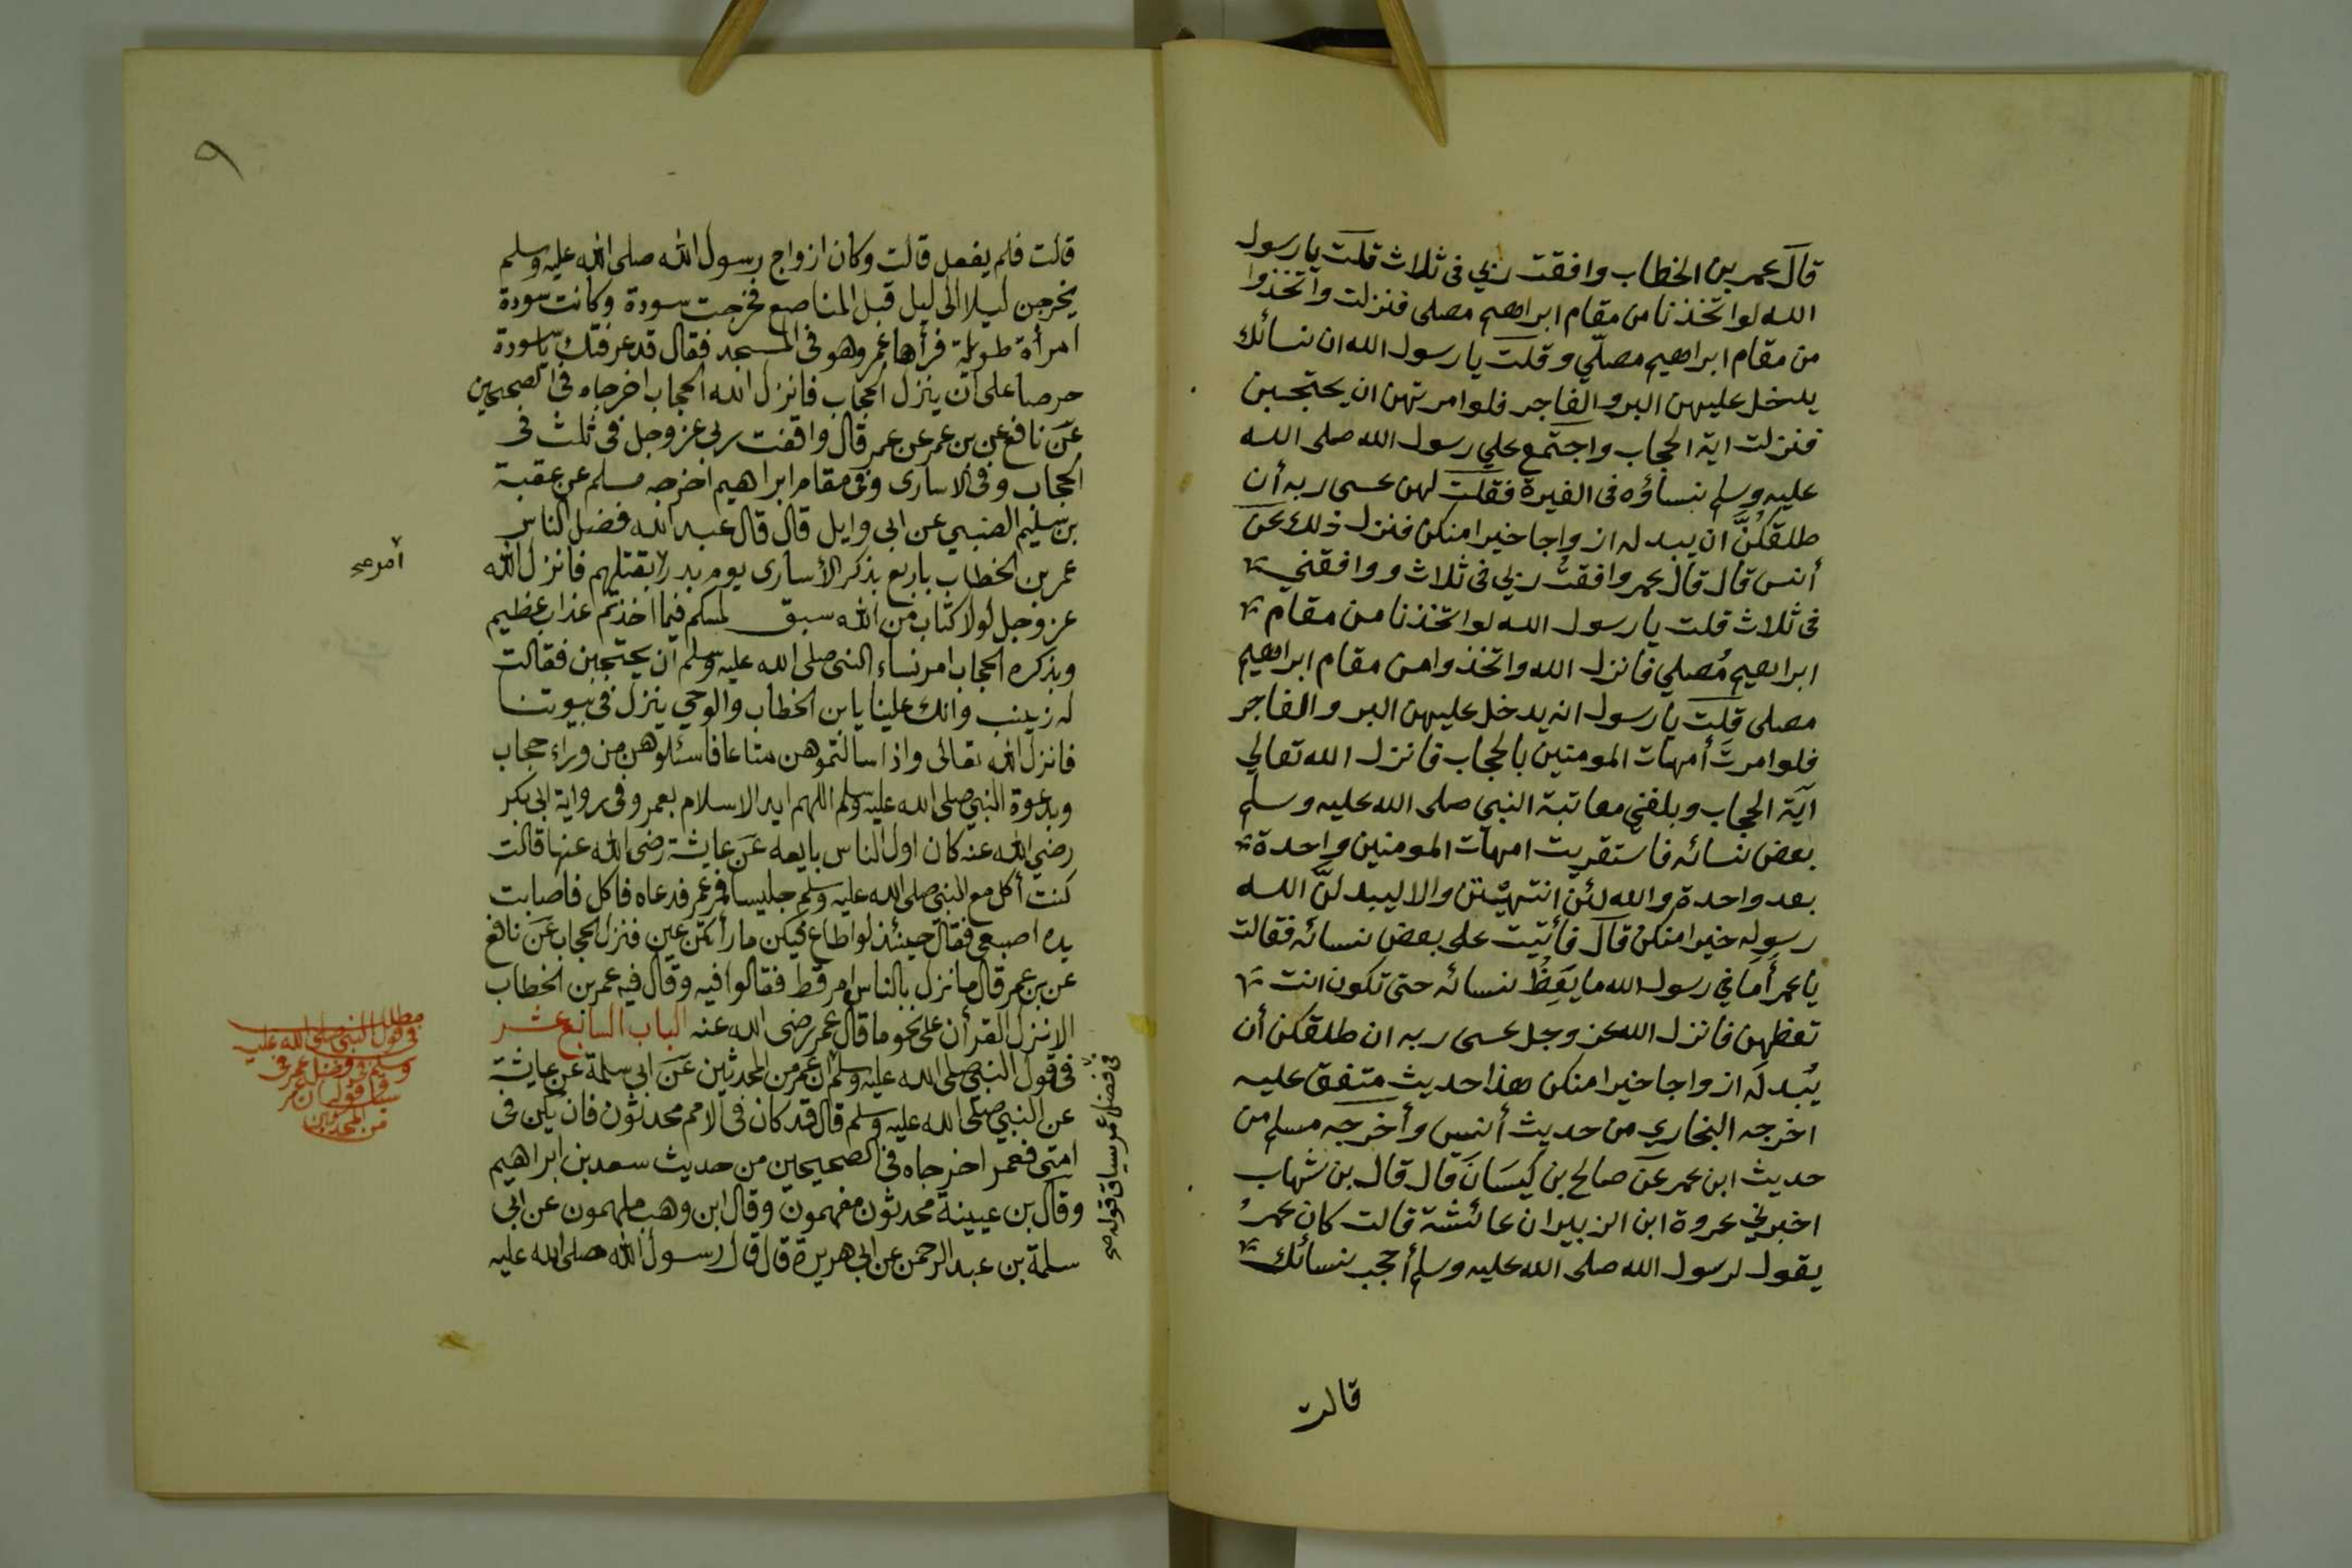 قال عمر بن الخطاب وافقت ربي في ثلاث قلت يا رسول
الله لو اتخذنا من مقام ابراهيم مصلى فنزلت واتخذوا
من مقام ابراهيم مصلّي وقلت يا رسول الله ان نسائك
يدخل عليهن البر والفاجر فلو امرتهن ان يحتجبن
فنزلت اية الحجاب واجتمع علي رسول الله صلى الله
عليه وسلم نساؤه في الغيرة فقلت لهن عسى ربه أن
طلقكُنَّ ان يبدله ازواجا خيرا منكن فنزل ذلك عن
أنس قال قال عمر وافقتُ ربي في ثلاث ووافقني
في ثلاث قلت يا رسول الله لو اتخذنا من مقام
ابراهيم مُصلي فانزل الله واتخذوا من مقام ابراهيم
مصلى قلت يا رسول انه يدخل عليهن البر والفاجر
فلو امرتَ أمهات المومنين بالحجاب فانزل الله تعالي
آية الحجاب وبلغني معاتبة النبي صلى الله عليه وسلم
بعض نسائه فاستقريت امهات المومنين واحدة
بعد واحدة والله لئن انتهيّتن والا ليبدلنّ الله
رسوله خيرا منكن قال فأتيت على بعض نسائه فقالت
يا عمر أَما في رسول الله ما يَعِظُ نسائه حتى تكون انت
تعظهن فانزل الله عز وجل عسى ربه ان طلقكن أن
يُبدلَه ازواجا خيرا منكن هذا حديث متفق عليه
اخرجه البخاري من حديث أنس وأخرجه مسلم من
حديث ابن عمر عن صالح بن كيسَانَ قال قال بن شهاب
اخبرني عروة ابن الزبير ان عائشة قالت كان عمرُ
يقول لرسول الله صلى الله عليه وسلم أحجب نسائك
قالت
٩
قالت فلم يفعل قالت وكان ازواج رسول الله صلى الله عليه وسلم
يخرجن ليلا الى ليل قبل المناصع فخرجت سودة وكانت سودة
امرأة طويلة فرأها عمر وهو في المسجد فقال قد عرفتك يا سودة
حرصا على ان ينزل الحجاب فانزل الله الحجاب اخرجاه في الصحيحين
عن نافع عن بن عمر عن عمر قال وافقت ربي عز وجل في ثلث في
الحجاب وفي الاسارى وفي مقام ابراهيم اخرجه مسلم عن عقبة
بن سليم الضبي عن ابي وايل قال قال عبد الله فضل الناس
عمر بن الخطاب باربع بذكر الأسارى يوم بدر بقتلهم فانزل الله
امر صح
عز وجل لولا كتاب من الله سبق لمسكم فيما اخذتم عذاب عظيم
وبذكره الحجاب امر نساء النبي صلى الله عليه وسلم ان يحتجبن فقالت
له زينب وانك علينا يا بن الخطاب والوحي ينزل في بيوتنا
فانزل الله تعالى واذا سالتموهن متاعا فاسئلوهن من وراء حجاب
وبدعوة النبي صلى الله عليه وسلم اللهم ايد الاسلام بعمر وفى رواية ابي بكر
رضي الله عنه كان اول الناس بايعه عن عايشة رضى الله عنها قالت
كنت أكل مع النبي صلى الله عليه وسلم جليسا فمر عمر فدعاه فاكل فاصابت
يده اصبعي فقال حينئذ لو اطاع فيكن ما رأتكن عين فنزل الحجاب عن نافع
عن بن عمر قال ما نزل بالناس امر قط فقالوا فيه وقال فيه عمر بن الخطاب
الا نزل القرأن على نحو ما قال عمر رضى الله عنه الباب السابع عشر
في قول النبي صلى الله عليه وسلم ان عمر من المحدثين عن ابي سلمة عن عايشة
عن النبي صلى الله عليه وسلم قال قد كان في الامم محدثون فان يكن في
امتي فعمر اخرجاه في الصحيحين من حديث سعد بن ابراهيم
وقال بن عيينة محدثون مفهمون وقال ابن وهب ملهمون عن ابي
سلمة بن عبد الرحمن عن ابي هريرة قال قال رسول الله صلى الله عليه
في فضل عمر سياق قوله صح
مطلب
في قول النبي صلى الله عليه
وسلم في فضل عمر في
سياق قوله ان عمر
من المحدثين